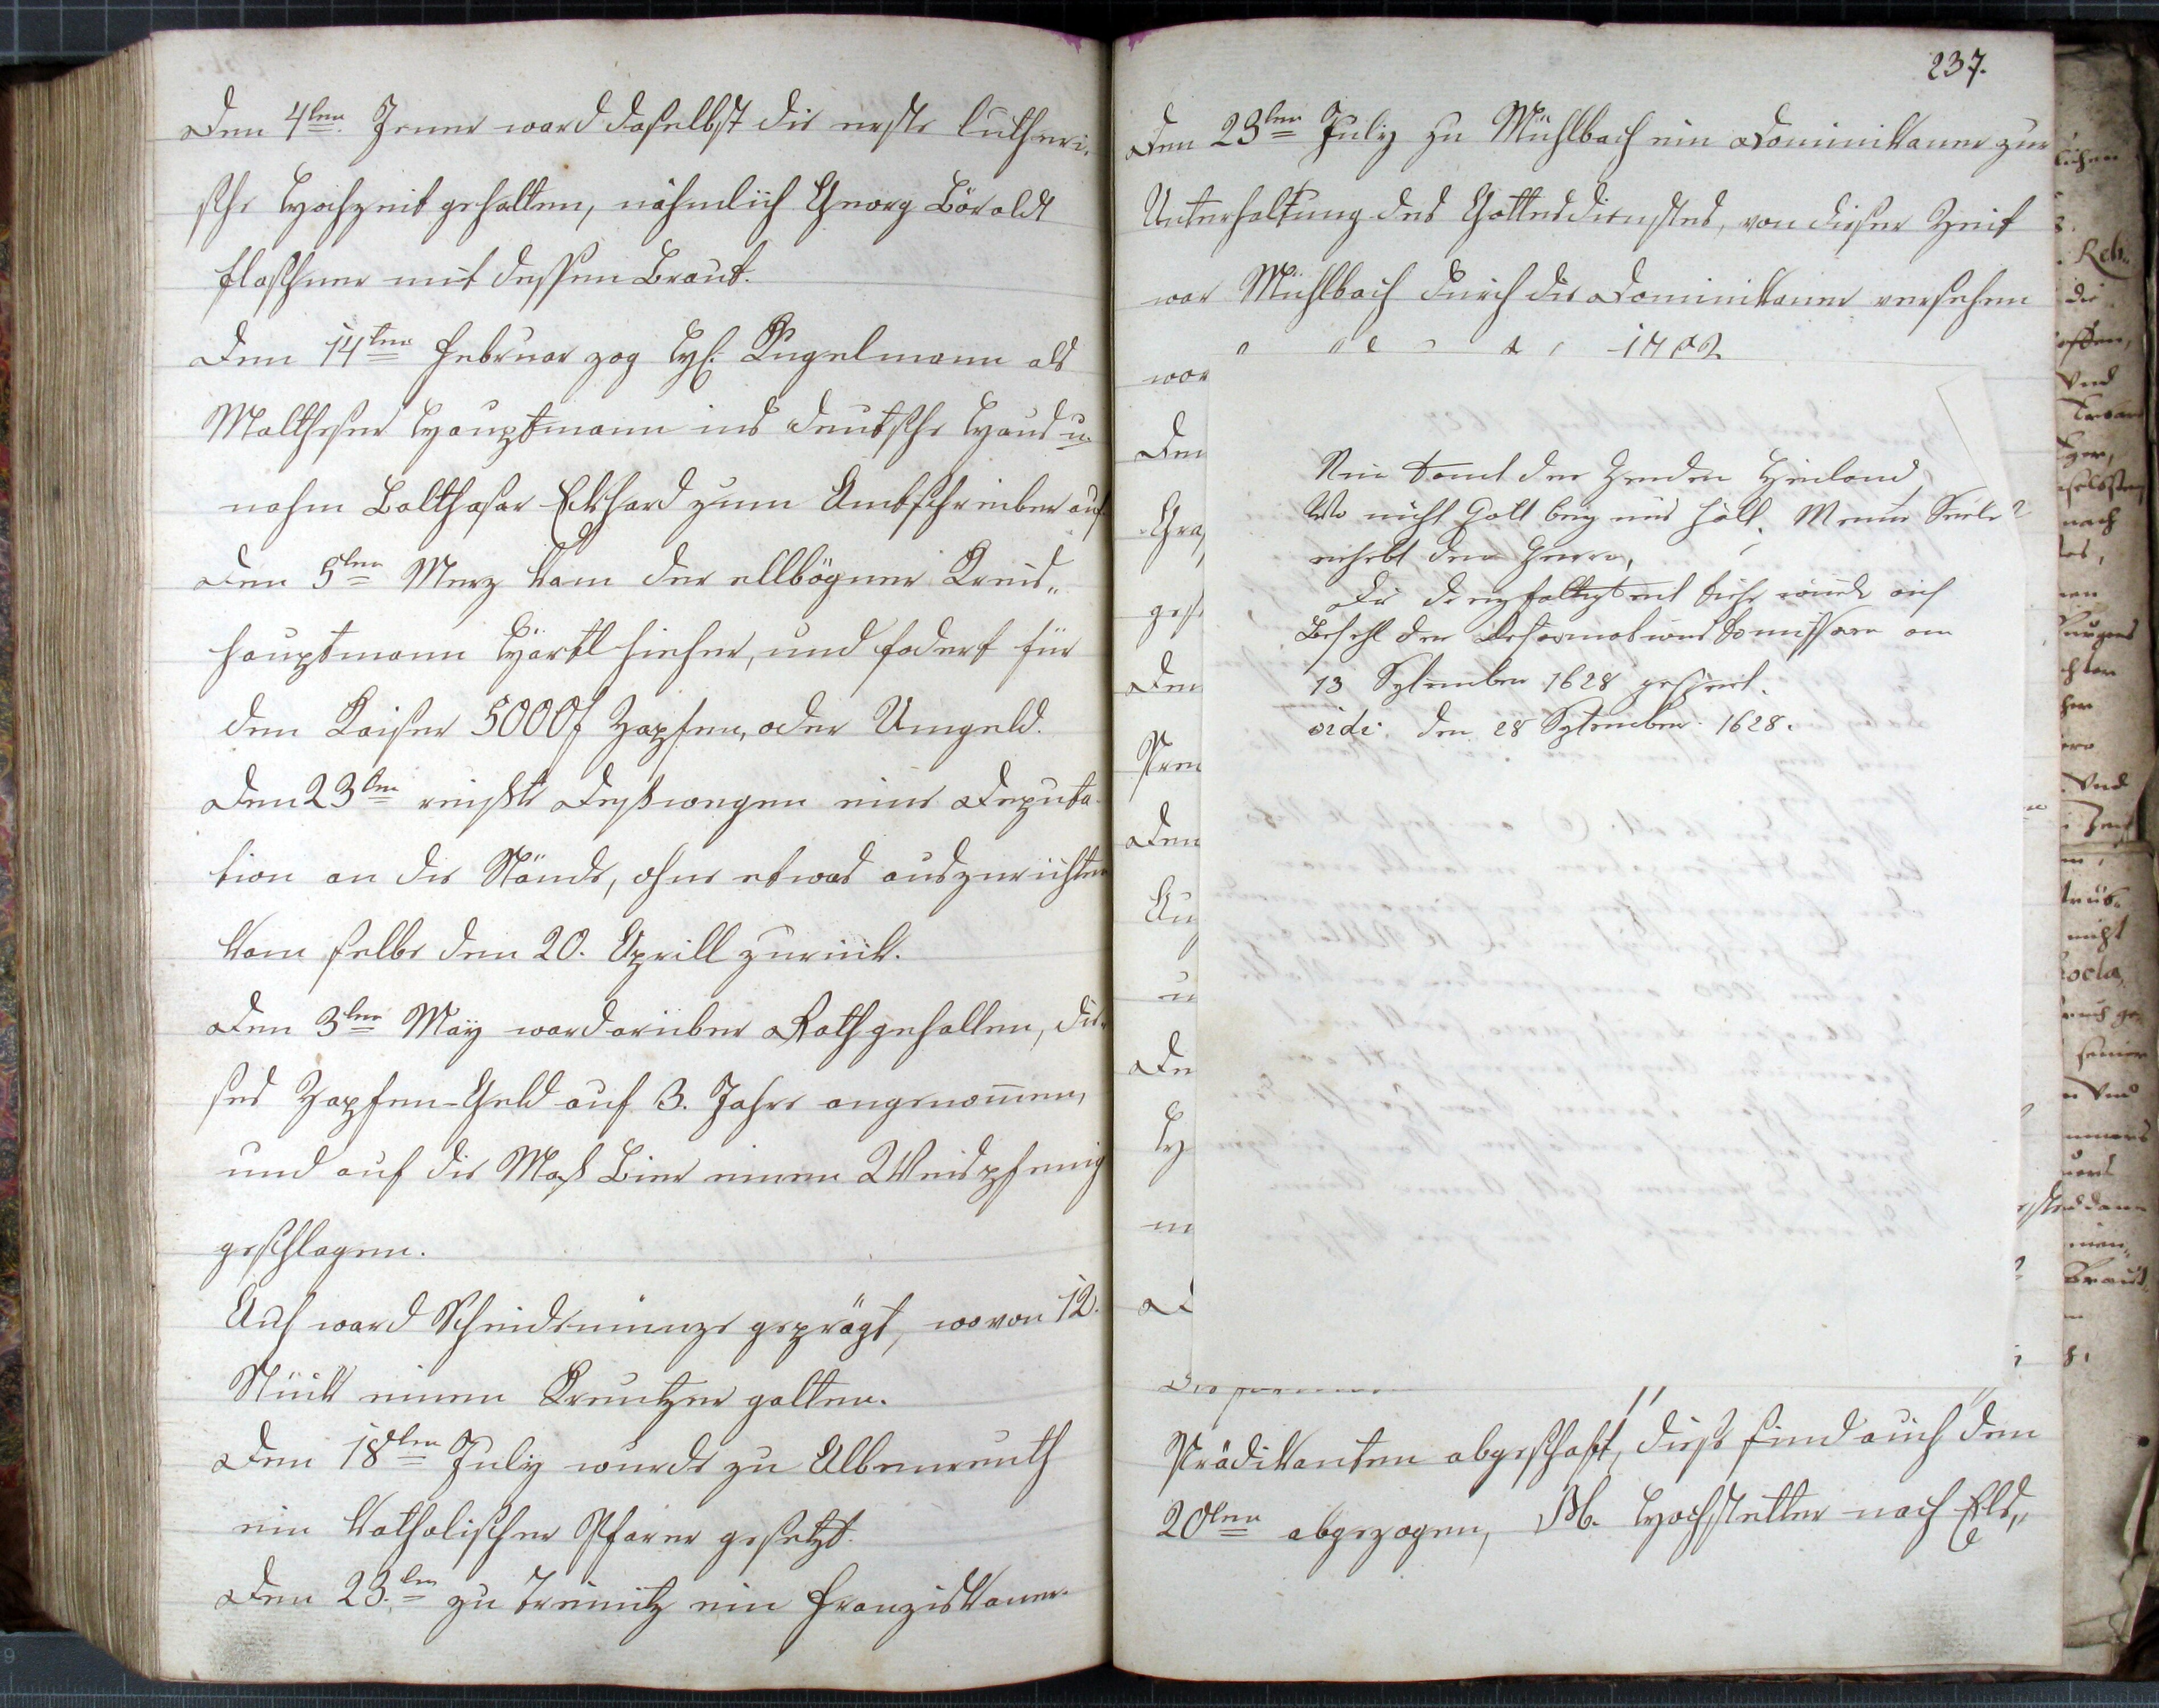 Den 4ten Jener ward daselbst die erste lutheri-
sche Hochzeit gehalten, nähmlich Georg Böraldt
Flaschner mit dessen Braut.
Den 14ten Februar zog H: Kugelmann als
Malthesers Hauptmann ins deutsche Haus u.
nahm Balthasar Eckhard zum Amtschreiber auf
Den 5ten Merz kam der ellbögner Kreis„
hauptmann Härtl hieher, und fodert für
den Kaiser 5000f Zapfen, oder Umgeld.
Den 23ten reißte deßwegen eine Deputa-
tion an die Stände, ohne etwas auszurichten
kam selbe den 20. Aprill zurück.
Den 3ten May ward darüber Rath gehalten, die-
ses Zapfen-Geld auf 3. Jahre angenomen,
und auf die Maß Bier einen Weispfenig
geschlagen.
Auch ward Scheidemünze geprägt, wovon 12.
Stück einen Kreutzer galten.
Den 18ten July wurde zu Albenreuth
ein katholischer Pfarer gesetzt.
Den 23.ten zu Treinitz ein Franziskaner.
237.
Den 23ten July zu Mühlbach ein Dominikaner zur
Unterhaltung des Gottesdienstes, von dieser Zeit
war Mühlbach durch die Dominikaner versehen
war
Den
Gra
ges
Den
Den
u
De
Nun komt der Heyden Heyland
Wo nicht Gott bey uns hält. Meine Seele
erhebt den Herrn,
Die Dreyfaltigkeit Kirche wurde auf
Befehl der Reformations Comissarn am
13 September 1628 gesperrt.
vidi. den 28 September 1628.
Prädikanten abgeschaft, diese sind auch den
20ten abgezogen, M. Hochstetter nach Els„